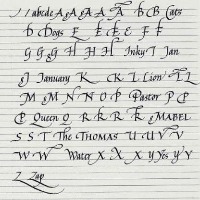 abcde A A A A A B B Cats
D Dogs E E E F F
G G G H H H Inky I Jan
J January K K L Lion L L
M M N N O P Pastor P P
P Queen Q R R R R MABEL
S S T The THOMAS U U V V
W W Water X X X Y Yes Y Y
Z Zap